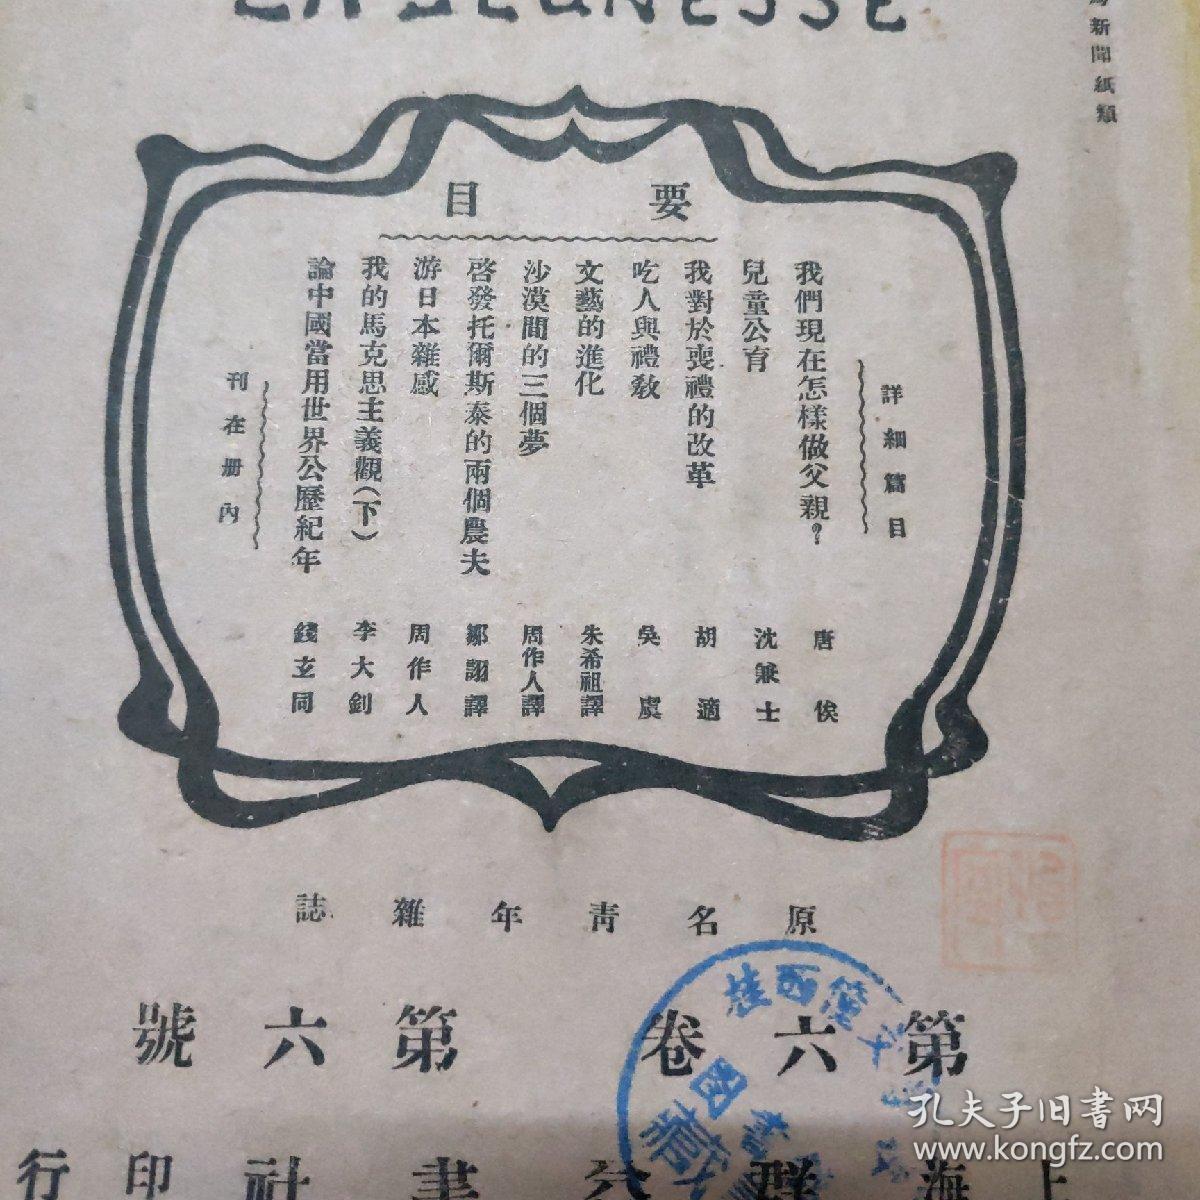 LA JEUNESSE
爲新聞紙類
要目
詳細篇目
我們現在怎樣做父親？ 唐俟
兒童公育 沈兼士
我對於喪禮的改革 胡適
吃人與禮敎 吳虞
文藝的進化 朱希祖譯
沙漠間的三個夢 周作人譯
啓發托爾斯泰的兩個農夫 鄒詡譯
游日本雜感 周作人
我的馬克思主義觀(下) 李大釗
論中國當用世界公歷紀年 錢玄同
刊在册內
原名靑年雜誌
第六卷第六號
上海羣益書社印行
桂西僮
圖書
孔夫子旧书网
www.kongfz.com